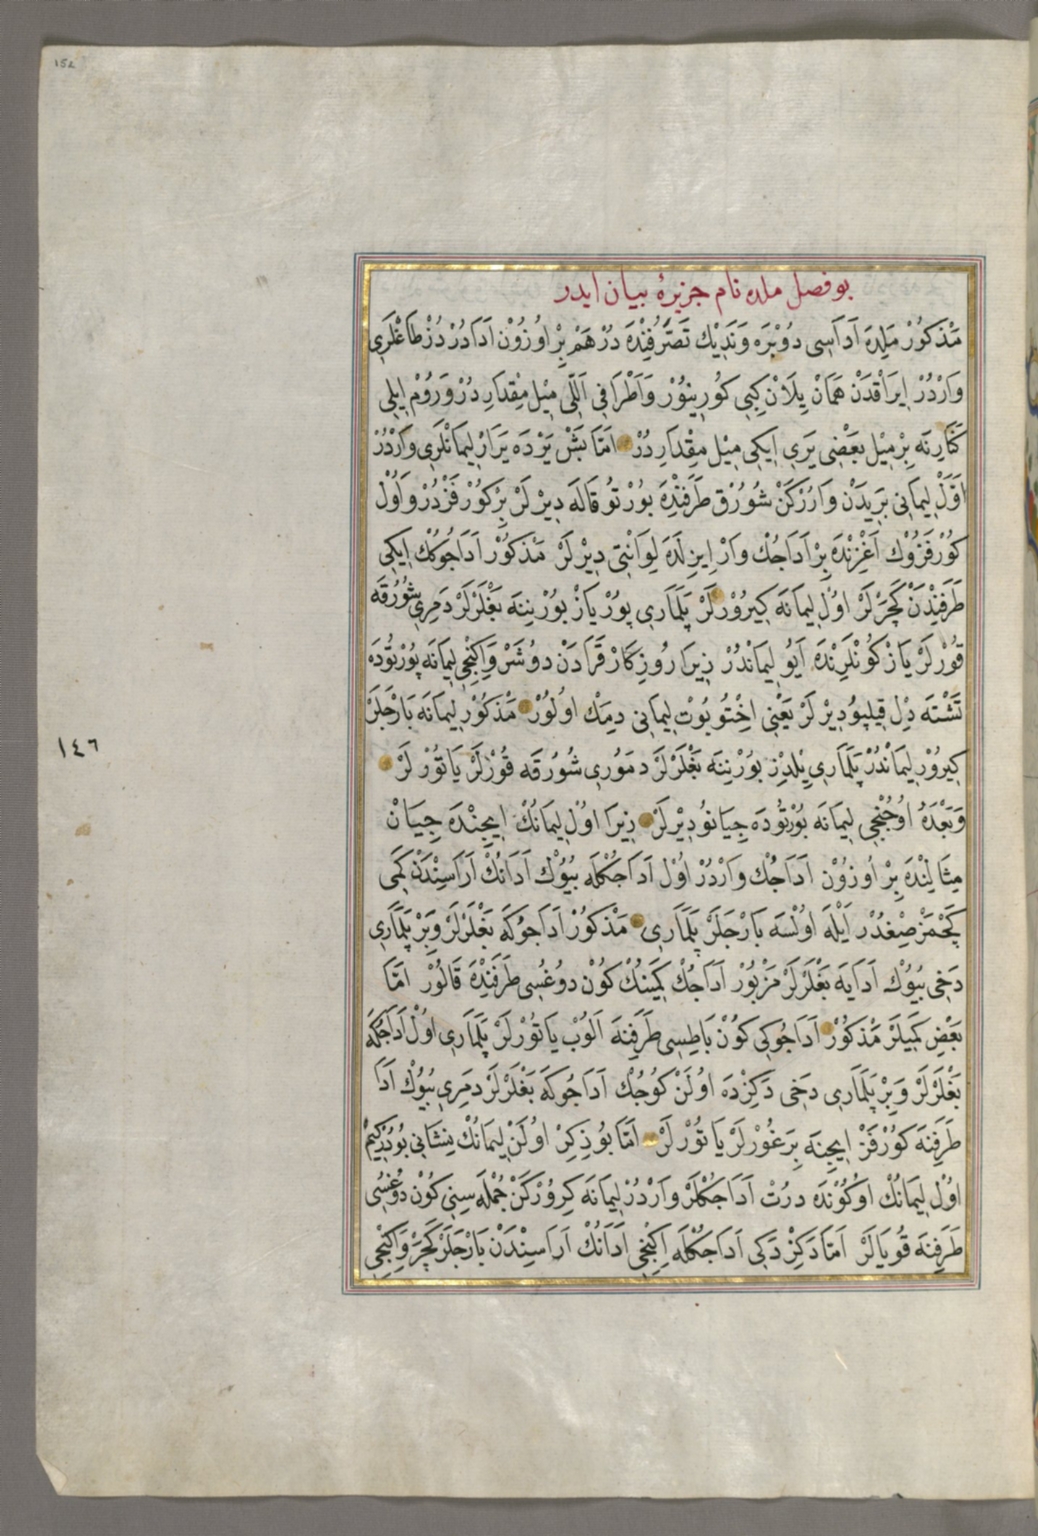 152
بو فصل ملده نام جزیرهٔ بیان ایدر
مَذْكُورْ مَلِدَه اَدَاسِی دُوبْرَه وَنَدِیكْ تَصَرُّفِنْدَه دُرْ هَمْ بِرْ اُوزُونْ اَدَادُرْ دُزْ طَاغْلَرِی
وَارْدُرْ اِیرَاقْدَنْ هَمَانْ یِلَانْ كِبِی كُورِینُوْرْ وَاَطْرَافِی اَللِّی مِیْل مِقْدَارِ دُرْ وَرُومْ اِیلِی
كَنَارِنَه بِرْ مِیْل بَعْضِی یَرِی اِیكِی مِیْل مِقْدَارِ دُرْ اَمَّا بَشْ یَرْدَه یَرَارْ لِیمَانْلَرِی وَارْدُرْ
اَوَّلْ لِیمَانِی بَرِیدَنْ وَارُرْكَنْ شُورُوْق طَرَفِنْدَه بُورْتُو قَالَه دِیرْلَرْ بِرْ كُورْفَزْدُرْ وَاُولْ
كُورْفَزُوكْ اَغْزِنْدَه بِرْ اَدَاجُكْ وَارْ اِیزِلَه لِوَانْتِی دِیرْلَرْ مَذْكُورْ اَدَاجُوكُكْ اِیكِی
طَرَفِنْدَنْ كَچَرْلَرْ اُولْ لِیمَانَه كِیرُوْرْلَرْ پَلَمَارِی پُورْیَازْ بُورْنِنَه بَغْلَرْلَرْ دَمِرِی شُورُقَه
قُورْلَرْ یَازْ كُونْلَرِنْدَه اَیُو لِیمَانْدُرْ زِیرَا رُوزِكَارْ قَرَادَنْ دُوشَرْ وَاِكِنْجِی لِیمَانَه پُورْتُودَه
تَشْتَه دِلْ قِیلِپُو دِیرْلَرْ یَعْنِی اِخْتُوبُوتْ لِیمَانِی دِمَكْ اُولُوْرْ مَذْكُورْ لِیمَانَه بَارْجَلَرْ
كِیرُوْرْ لِیمَانْدُرْ پَلَمَارِی یِلْدِزْ بُورْنِنَه بَغْلَرْلَرْ دَمُورِی شُورُقَه قُورْلَرْ یَاتُوْرْلَرْ
وَبَعْدَهُ اُوچُنْجِی لِیمَانَه بُورْتُودَه جِیَانُو دِیرْلَرْ زِیرَا اُولْ لِیمَانُكْ اِیچِنْدَه جِیَانْ
مِثَالِنْدَه بِرْ اُوزُونْ اَدَاجُكْ وَارْدُرْ اُولْ اَدَاجُكْلَه بُیُوكْ اَدَانُكْ اَرَاسِنْدَنْ كَمِی
كَچْمَزْ صِغْدُرْ اَیْلَه اُولْسَه بَارْجَلَرْ پَلَمَارِی مَذْكُورْ اَدَاجُوكَه بَغْلَرْلَرْ وَبِرْ پَلَمَارِی
دَخِی بُیُوكْ اَدَایَه بَغْلَرْلَرْ مَزْبُورْ اَدَاجُكْ كَمِینُكْ كُونْ دُوغُسِی طَرَفِنْدَه قَالُوْرْ اَمَّا
بَعْضِ كَمِیلَرْ مَذْكُورْ اَدَاجُوكِی كُونْ بَاطِسِی طَرَفِنَه اَلُوبْ یَاتُوْرْلَرْ پَلَمَارِی اُولْ اَدَاجُكَه
بَغْلَرْلَرْ وَبِرْ پَلَمَارِی دَخِی دَكِزْدَه اُولَنْ كُوجُكْ اَدَاجُوكَه بَغْلَرْلَرْ دَمِرِی بُیُوكْ اَدَا
طَرَفِنَه كُورْفَزْ اِیچِنَه بِرَغُوْرْلَرْ یَاتُوْرْلَرْ اَمَّا بُو ذِكِرْ اُولَنْ لِیمَانُكْ نِشَانِی بُودُرْكِیمْ
اُولْ لِیمَانُكْ اُوكُونْدَه دُرْتْ اَدَاجُكْلَرْ وَارْدُرْ لِیمَانَه كِرُوْرْكَنْ جُمْلَه سِنِی كُونْ دُوغُسِی
طَرَفِنَه قُویَالَرْ اَمَّا دَكِزْدَكِی اَدَاجُكْلَه اِكِنْجِی اَدَانُكْ اَرَاسِنْدَنْ بَارْجَلَرْ كَچَرْ وَاِكِنْجِی
١٤٦